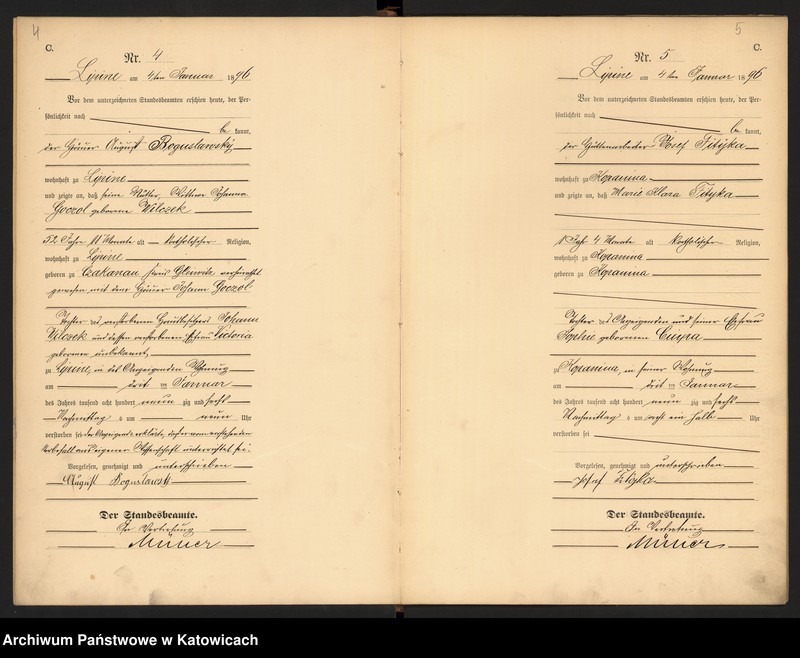 4
C.
Nr. 4
Lipine am 4ten Januar 1896
Vor dem unterzeichneten Standesbeamten erschien heute, der Per-
sönlichkeit nach
be kannt,
der Häuer August Boguslawsky
wohnhaft zu Lipine
und zeigte an, daß seine Mutter, Wittwe Johanna
Goczol geborene Wilczek
52 Jahre 11 Monate alt katholischer Religion,
wohnhaft zu Lipine
geboren zu Czakanau Kreis Gleiwitz verheirathet
gewesen mit dem Häuer Johann Goczol
Tochter des verstorbenen Johann
Wilczek und dessen verstorbenen Ehefrau Victoria
geborenen unbekannt,
zu Lipine, in des Anzeigenden Wohnung
am drei ten Januar
des Jahres tausend acht hundert neun zig und sechs
Nachmittag s um neun Uhr
verstorben sei. der Anzeigende erklärte, daß er vom vorstehenden
Sterbefall aus eigener Wissenschaft unterrichtet sei.
Vorgelesen, genehmigt und unterschrieben
August Boguslawski
Der Standesbeamte.
In Vertretung
5
C.
Nr. 5
Lipine am 4ten Januar 1896
Vor dem unterzeichneten Standesbeamten erschien heute, der Per-
sönlichkeit nach
be kannt,
der Hüttenarbeiter Josef
wohnhaft zu
und zeigte an, daß Marie Klara
1 Jahr 4 Monate alt katholischer Religion,
wohnhaft zu
geboren zu
Tochter des Anzeigenden und seiner Ehefrau
Sophie geborenen
zu in seiner Wohnung
am drei ten Januar
des Jahres tausend acht hundert neun zig und sechs
Nachmittag s um acht ein halb Uhr
verstorben sei
Vorgelesen, genehmigt und unterschrieben
Josef
Der Standesbeamte.
In Vertretung
Archiwum Państwowe w Katowicach